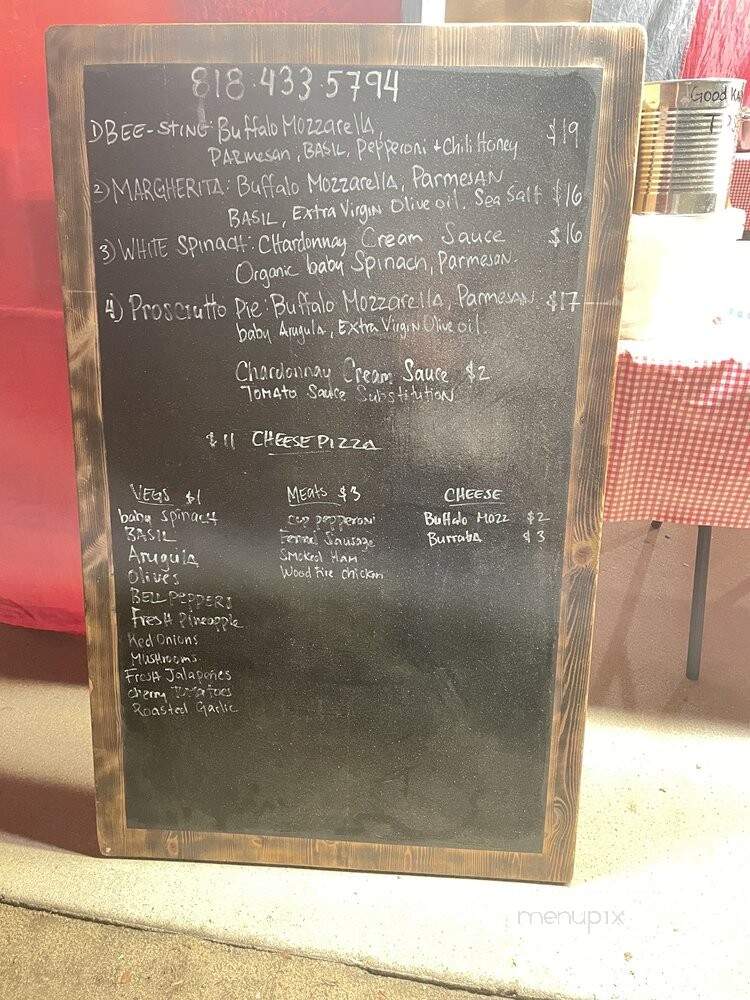 818.433.5794
Good Ka
1) BEE-STING: Buffalo Mozzarella,
PARmesan, BASIL, Pepperoni + Chili Honey $19
2) MARGHERITA: Buffalo Mozzarella, Parmesan
BASIL, Extra Virgin Olive oil. Sea Salt $16
3) WHITE Spinach: Chardonnay Cream Sauce $16
Organic baby Spinach, Parmesan.
4) Prosciutto Pie: Buffalo Mozzarella, Parmesan $17
baby Arugula, Extra Virgin Olive oil.
Chardonnay Cream Sauce $2
Tomato Sauce Substitution
$11 CHEESE PIZZA
VEGS $1
baby spinach
BASIL
Arugula
Olives
BELL PEPPERS
Fresh Pineapple
Red Onions
Mushrooms
Fresh Jalapeñes
cherry Tomatoes
Roasted Garlic
Meats $3
cup pepperoni
Fennel Sausage
Smoked Ham
Wood Fire chicken
CHEESE
Buffalo Mozz $2
Burrata $3
menupix